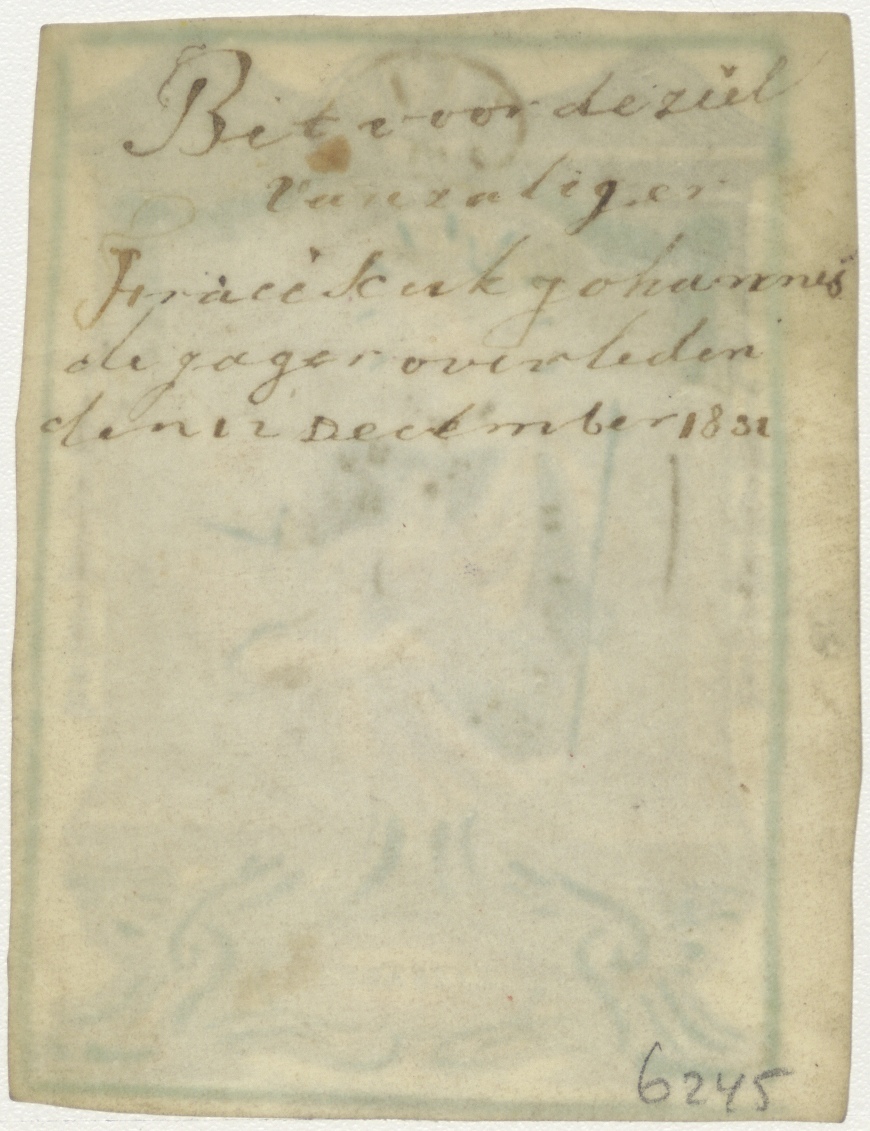 Bit voor de ziel
van zaliger
Fraciskuk johannes
de jager overleden
den 12 December 1831
6245